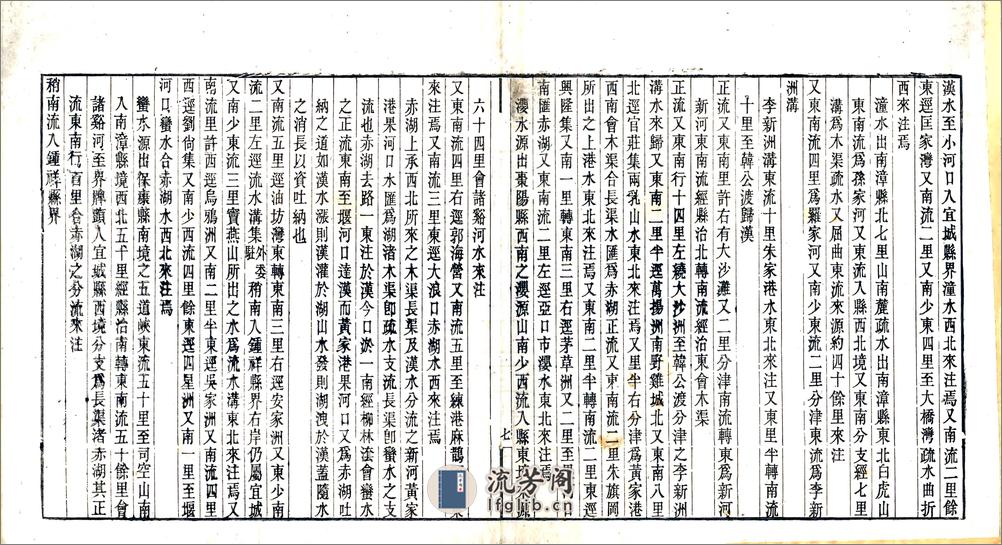 漢水至小河口入宜城縣界潼水西北來注焉又南流二里餘
東逕匡家灣又南流二里又南少東四里至大橋灣疏水曲折
西來注焉
潼水出南漳縣北七里山南麓疏水出南漳縣東北白虎山
東南流為孫家河又東流入縣西北境又東南分支經七里
溝為木渠疏水又屈曲東流來源約四十餘里來注
又東南流四里為羅家河又南少東流二里分津東流為李新
洲溝
李新洲溝東流十里朱家港水東北來注又東里半轉南流
十里至韓公渡歸漢
正流又東南里許右有大沙灘又二里分津南流轉東為新河
新河東南流經縣治北轉南流經治東會木渠
正流又東南行十四里左繞大沙洲至韓公渡分津之李新洲
溝水來歸又東南二里半逕萬揚洲南野雞城北又東南八里
北逕官莊集南乳山水東北來注焉又里半右分津為黃家港
西南會木渠水合長渠水匯為赤湖正流又東南流二里朱旗岡
所出之上港水東北來注焉又東南二里半轉南流二里東逕
興隆集又南一里轉東南三里右逕茅草洲又二里
南匯赤湖又東南流二里左逕亞口市瀴水東北來注焉
瀴水源出棗陽縣西南之瀴源山南少西流入縣東境
七
六十四里會諸谿河水來注
又東南流四里右逕郭海營又南流五里至練港麻鶴
來注焉又南流三里東逕大浪口赤湖水西來注焉
赤湖上承西北所來之木渠長渠及漢水分流之新河黃家
港果河口水匯為湖渚木渠卽疏水支流長渠卽蠻水之支
流也赤湖去路一東注於漢今口淤一南經柳林㳒會蠻水
之正流東南至堰河口達漢而黃家港果河口又為赤湖吐
納之道如漢水漲則漢灌於湖山水發則湖洩於漢蓋隨水
之消長以資吐納也
又南流五里逕油坊灣東轉東南三里右逕安家洲又東少南
流二里左逕流水溝集外委駐稍南入鍾祥縣界右岸仍屬宜城
又南少東流三里寶燕山所出之水為流水溝東北來注焉又
南流里許西逕烏鴉洲又南二里半東逕吳家洲又南流四里
西逕劉倚集又南少西流四里餘東逕四星洲又南一里至堰
河口蠻水合赤湖水西北來注焉
蠻水源出保康縣南境之五道峽東流五十里至司空山南
入南漳縣境西北五十里經縣治南轉東南流五十餘里會
諸谿河至界牌頭入宜城縣西境分支為長渠渚赤湖其正
流東南行百里合赤湖之分流來注
稍南流入鍾祥縣界
流芳阁
lfglib.cn